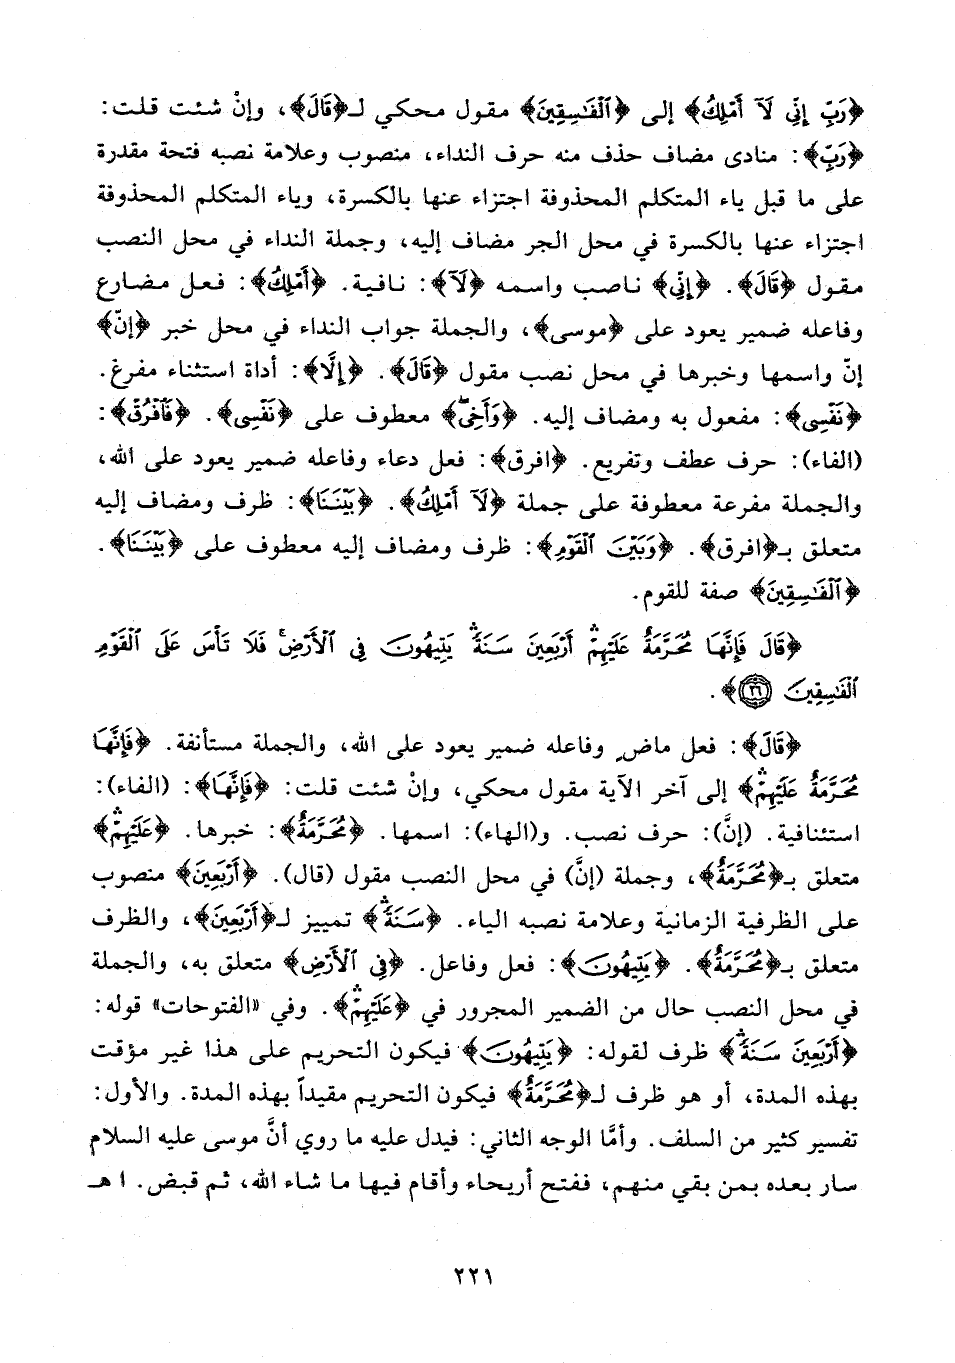 ﴿رَبِّ إِنِّي لَآ أَمْلِكُ﴾ إلى ﴿الْفَاسِقِينَ﴾ مقول محكي لـ﴿قَالَ﴾، وإنْ شئت قلت:
﴿رَبِّ﴾: منادى مضاف حذف منه حرف النداء، منصوب وعلامة نصبه فتحة مقدرة
على ما قبل ياء المتكلم المحذوفة اجتزاء عنها بالكسرة، وياء المتكلم المحذوفة
اجتزاء عنها بالكسرة في محل الجر مضاف إليه، وجملة النداء في محل النصب
مقول ﴿قَالَ﴾. ﴿إِنِّي﴾ ناصب واسمه ﴿لَآ﴾: نافية. ﴿أَمْلِكُ﴾: فعل مضارع
وفاعله ضمير يعود على ﴿موسى﴾، والجملة جواب النداء في محل خبر ﴿إنّ﴾
إنّ واسمها وخبرها في محل نصب مقول ﴿قَالَ﴾. ﴿إِلَّا﴾: أداة استثناء مفرغ.
﴿نَفْسِى﴾: مفعول به ومضاف إليه. ﴿وَأَخِىۖ﴾ معطوف على ﴿نَفْسِى﴾. ﴿فَافْرُقْ﴾:
(الفاء): حرف عطف وتفريع. ﴿افرق﴾: فعل دعاء وفاعله ضمير يعود على الله،
والجملة مفرعة معطوفة على جملة ﴿لَآ أَمْلِكُ﴾. ﴿بَيْنَنَا﴾: ظرف ومضاف إليه
متعلق بـ﴿افرق﴾. ﴿وَبَيْنَ الْقَوْمِ﴾: ظرف ومضاف إليه معطوف على ﴿بَيْنَنَا﴾.
﴿الْفَاسِقِينَ﴾ صفة للقوم.
﴿قَالَ فَإِنَّهَا مُحَرَّمَةٌ عَلَيْهِمْۛ أَرْبَعِينَ سَنَةًۛ يَتِيهُونَ فِي الْأَرْضِۚ فَلَا تَأْسَ عَلَى الْقَوْمِ
الْفَاسِقِينَ ٢٦﴾.
﴿قَالَ﴾: فعل ماضٍ وفاعله ضمير يعود على الله، والجملة مستأنفة. ﴿فَإِنَّهَا
مُحَرَّمَةٌ عَلَيْهِمْۛ﴾ إلى آخر الآية مقول محكي، وإنْ شئت قلت: ﴿فَإِنَّهَا﴾: (الفاء):
استئنافية. (إنَّ): حرف نصب. و(الهاء): اسمها. ﴿مُحَرَّمَةٌ﴾: خبرها. ﴿عَلَيْهِمْۛ﴾
متعلق بـ﴿مُحَرَّمَةٌ﴾، وجملة (إنَّ) في محل النصب مقول (قال). ﴿أَرْبَعِينَ﴾ منصوب
على الظرفية الزمانية وعلامة نصبه الياء. ﴿سَنَةًۛ﴾ تمييز لـ﴿أَرْبَعِينَ﴾، والظرف
متعلق بـ﴿مُحَرَّمَةٌ﴾. ﴿يَتِيهُونَ﴾: فعل وفاعل. ﴿فِي الْأَرْضِ﴾ متعلق به، والجملة
في محل النصب حال من الضمير المجرور في ﴿عَلَيْهِمْۛ﴾. وفي «الفتوحات» قوله:
﴿أَرْبَعِينَ سَنَةًۛ﴾ ظرف لقوله: ﴿يَتِيهُونَ﴾ فيكون التحريم على هذا غير مؤقت
بهذه المدة، أو هو ظرف لـ﴿مُحَرَّمَةٌ﴾ فيكون التحريم مقيداً بهذه المدة. والأول:
تفسير كثير من السلف. وأمَّا الوجه الثاني: فيدل عليه ما روي أنَّ موسى عليه السلام
سار بعده بمن بقي منهم، ففتح أريحاء وأقام فيها ما شاء الله، ثم قبض. ا هـ
٢٢١